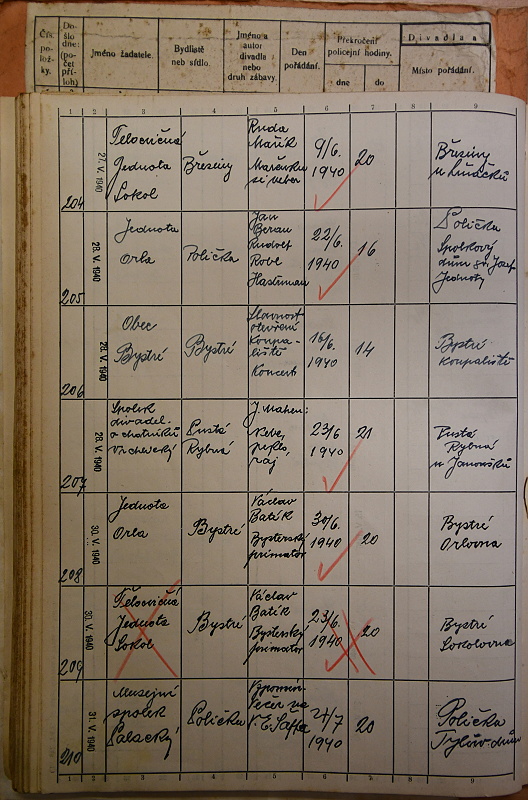 Čís. po- lož- ky.
Do- šlo dne: (po- čet pří- loh)
Jméno žadatele.
Bydliště neb sídlo.
Jméno a autor divadla nebo druh zábavy.
Den pořádání.
Překročení policejní hodiny.
dne
do
Divadla a
Místo pořádání.
1 2 3 4 5 6 7 8 9
204
27. V. 1940
Tělocvičná
Jednota
Sokol
Březiny
Ruda
Mařík
Mařenka
si
9/6.
1940
20
Březiny
u
205
28. V. 1940
Jednota
Orla
Polička
Jan
Beran
Rudolf
22/6.
1940
16
Polička
Spolkový
dům
Jednoty
206
28. V. 1940
Obec
Bystré
Bystré
Slavnost
otevření
koupa-
liště
Koncert
16/6.
1940
14
Bystré
koupaliště
207
28. V. 1940
Spolek
divadel.
ochotníků
Pustá
Rybná
J. Mahen:
Nebe,
peklo,
ráj
23/6
1940
21
Pustá
Rybná
u Janoušků
208
30. V. 1940
Jednota
Orla
Bystré
Václav
Baťík
Bysterský
primátor
30/6.
1940
20
Bystré
Orlovna
209
30. V. 1940
Tělocvičná
Jednota
Sokol
Bystré
Václav
Baťík
Bysterský
primátor
23/6.
1940
20
Bystré
Sokolovna
210
31. V. 1940
Musejní
spolek
Palacký
Polička
Večer na
V. E. Šaffa
1940
20
Polička
Tylův dům
1 2 3 4 5 6 7 8 9